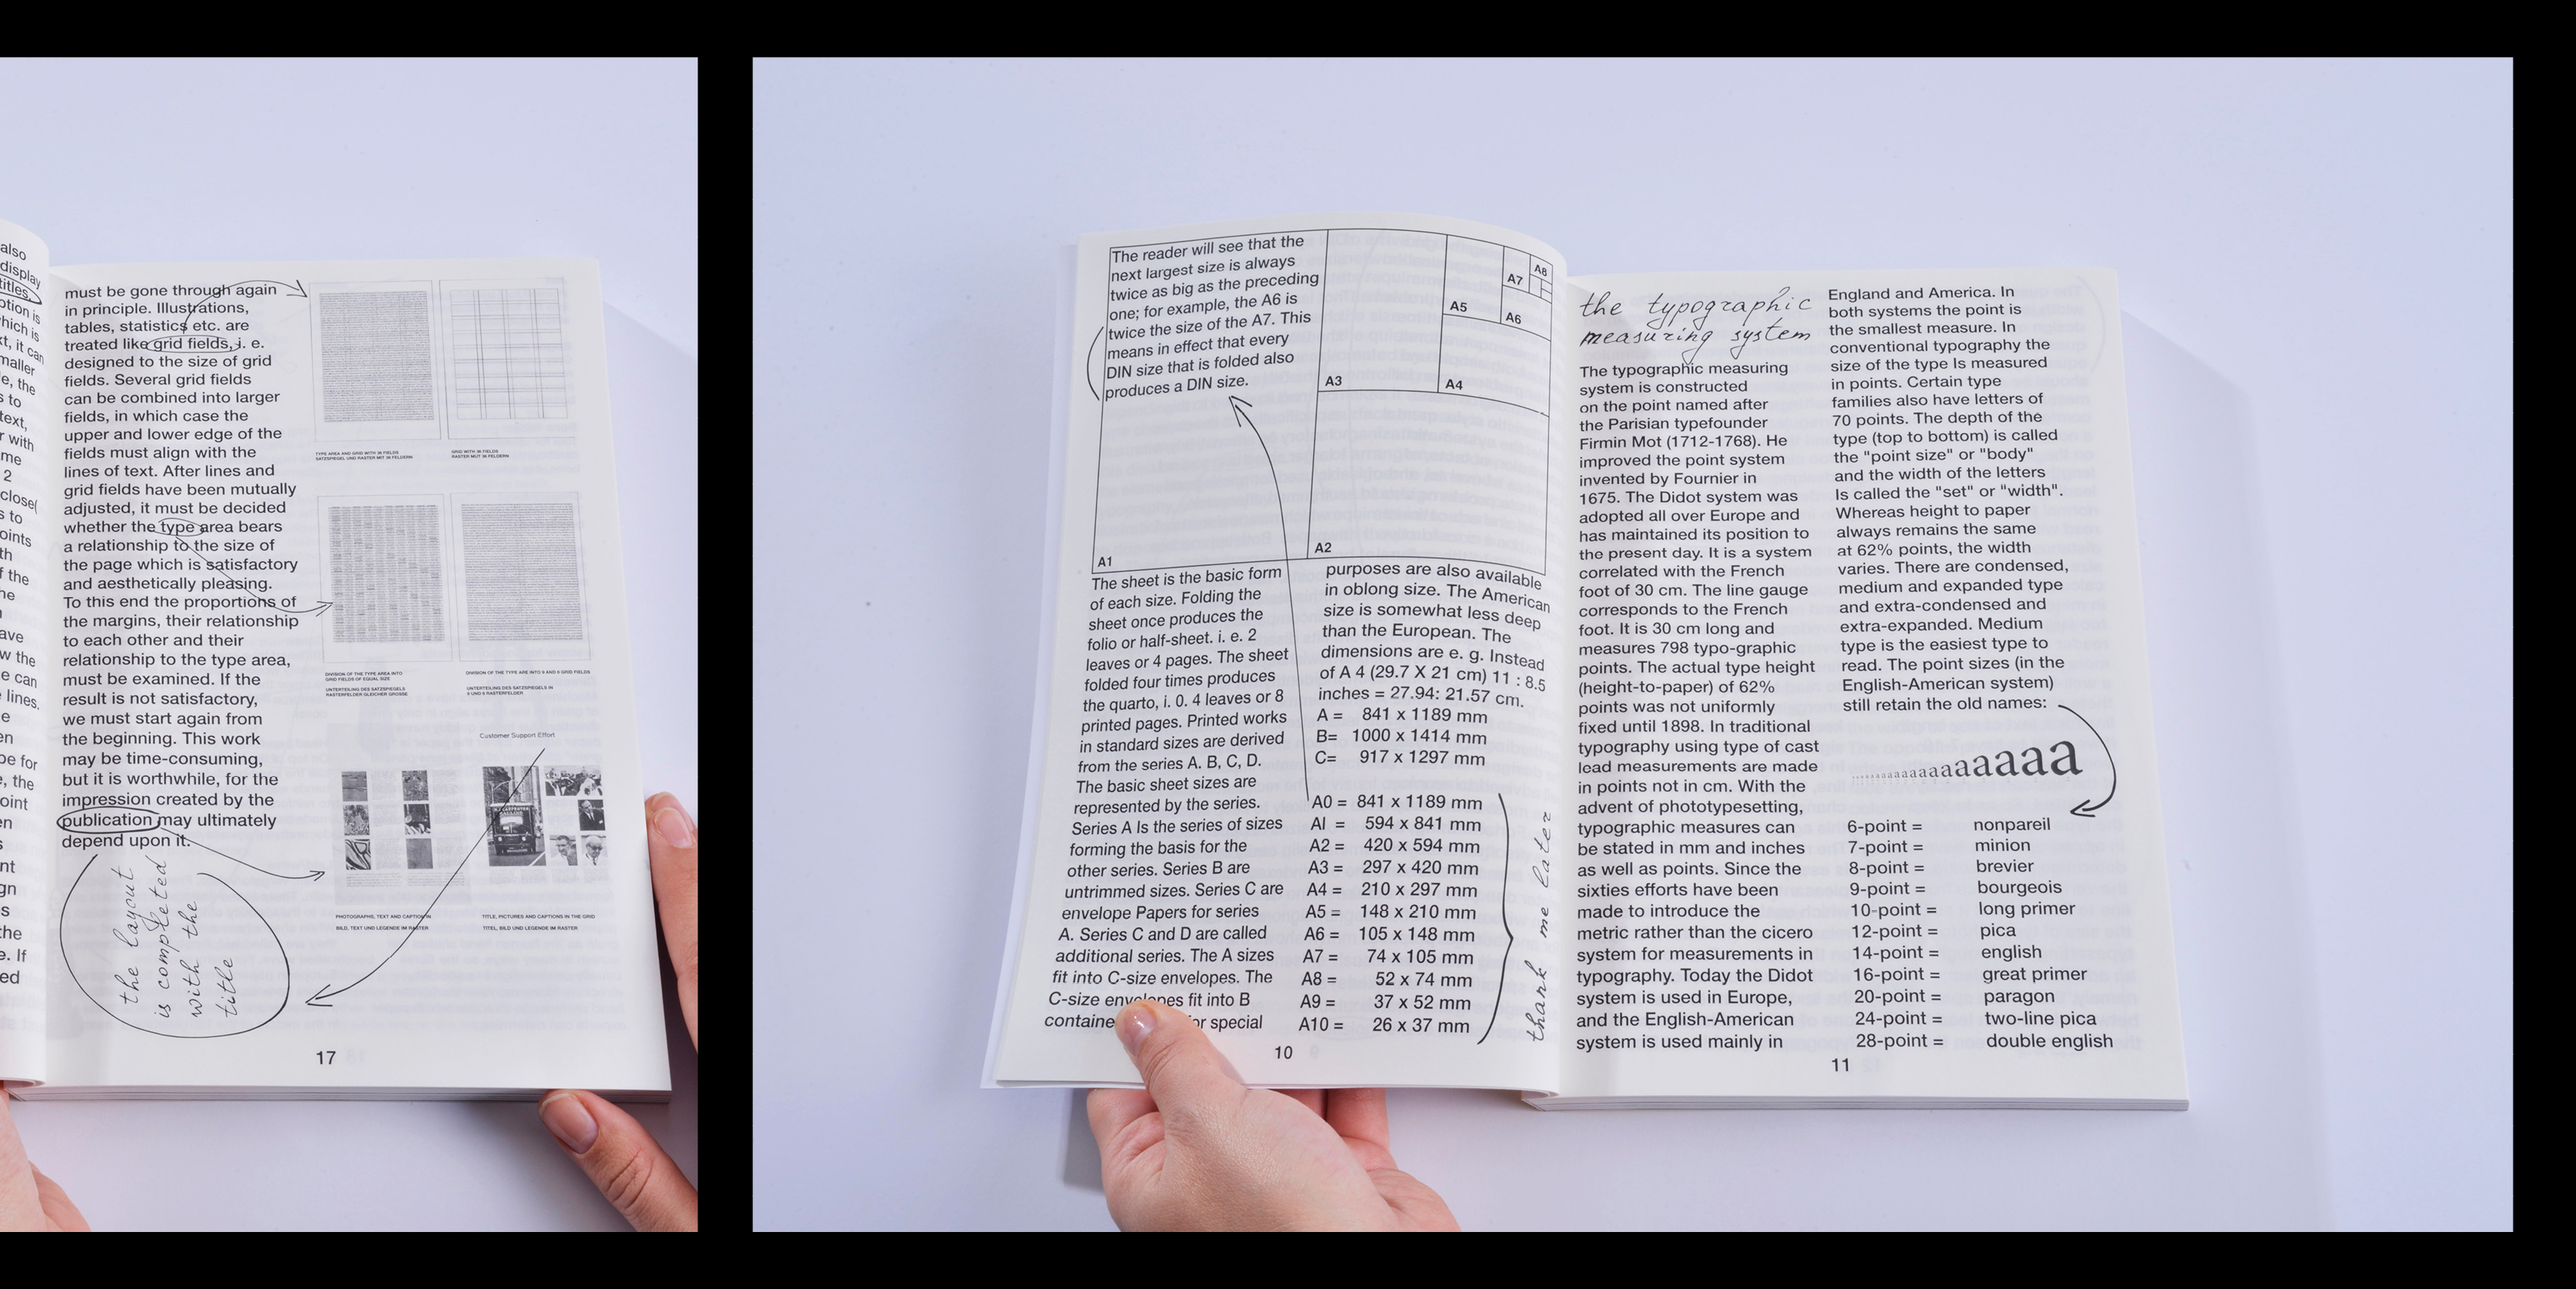 also
display
titles,
otion is
hich is
xt, it can
maller
e, the
s to
text,
r with
me
2
close(
s to
oints
th
f the
ne
ave
w the
e can
lines.
e
en
pe for
, the
oint
en
s
nt
gn
s
the
e. If
ed
must be gone through again
in principle. Illustrations,
tables, statistics etc. are
treated like grid fields, i. e.
designed to the size of grid
fields. Several grid fields
can be combined into larger
fields, in which case the
upper and lower edge of the
fields must align with the
lines of text. After lines and
grid fields have been mutually
adjusted, it must be decided
whether the type area bears
a relationship to the size of
the page which is satisfactory
and aesthetically pleasing.
To this end the proportions of
the margins, their relationship
to each other and their
relationship to the type area,
must be examined. If the
result is not satisfactory,
we must start again from
the beginning. This work
may be time-consuming,
but it is worthwhile, for the
impression created by the
publication may ultimately
depend upon it.
the layout
is completed
with the
title
TYPE AREA AND GRID WITH 36 FIELDS
SATZSPIEGEL UND RASTER MIT 36 FELDERN
GRID WITH 36 FIELDS
RASTER MUT 36 FELDERN
DIVISION OF THE TYPE AREA INTO
GRID FIELDS OF EQUAL SIZE
UNTERTEILUNG DES SATZSPIEGELS
RASTERFELDER GLEICHER GROSSE
DIVISION OF THE TYPE ARE INTO 9 AND 6 GRID FIELDS
UNTERTEILUNG DES SATZSPIEGELS IN
9 UND 6 RASTERFELDER
Customer Support Effort
PHOTOGRAPHS, TEXT AND CAPTION IN
BILD, TEXT UND LEGENDE IM RASTER
TITLE, PICTURES AND CAPTIONS IN THE GRID
TITEL, BILD UND LEGENDE IM RASTER
17
The reader will see that the
next largest size is always
twice as big as the preceding
one; for example, the A6 is
twice the size of the A7. This
means in effect that every
DIN size that is folded also
produces a DIN size.
A1
A2
A3
A4
A5
A6
A7
A8
The sheet is the basic form
of each size. Folding the
sheet once produces the
folio or half-sheet. i. e. 2
leaves or 4 pages. The sheet
folded four times produces
the quarto, i. 0. 4 leaves or 8
printed pages. Printed works
in standard sizes are derived
from the series A. B, C, D.
The basic sheet sizes are
represented by the series.
Series A Is the series of sizes
forming the basis for the
other series. Series B are
untrimmed sizes. Series C are
envelope Papers for series
A. Series C and D are called
additional series. The A sizes
fit into C-size envelopes. The
C-size envelopes fit into B
containe or special
purposes are also available
in oblong size. The American
size is somewhat less deep
than the European. The
dimensions are e. g. Instead
of A 4 (29.7 X 21 cm) 11 : 8.5
inches = 27.94: 21.57 cm.
A = 841 x 1189 mm
B= 1000 x 1414 mm
C= 917 x 1297 mm
A0 = 841 x 1189 mm
AI = 594 x 841 mm
A2 = 420 x 594 mm
A3 = 297 x 420 mm
A4 = 210 x 297 mm
A5 = 148 x 210 mm
A6 = 105 x 148 mm
A7 = 74 x 105 mm
A8 = 52 x 74 mm
A9 = 37 x 52 mm
A10 = 26 x 37 mm
thank me later
10
the typographic
measuring system
The typographic measuring
system is constructed
on the point named after
the Parisian typefounder
Firmin Mot (1712-1768). He
improved the point system
invented by Fournier in
1675. The Didot system was
adopted all over Europe and
has maintained its position to
the present day. It is a system
correlated with the French
foot of 30 cm. The line gauge
corresponds to the French
foot. It is 30 cm long and
measures 798 typo-graphic
points. The actual type height
(height-to-paper) of 62%
points was not uniformly
fixed until 1898. In traditional
typography using type of cast
lead measurements are made
in points not in cm. With the
advent of phototypesetting,
typographic measures can
be stated in mm and inches
as well as points. Since the
sixties efforts have been
made to introduce the
metric rather than the cicero
system for measurements in
typography. Today the Didot
system is used in Europe,
and the English-American
system is used mainly in
England and America. In
both systems the point is
the smallest measure. In
conventional typography the
size of the type Is measured
in points. Certain type
families also have letters of
70 points. The depth of the
type (top to bottom) is called
the "point size" or "body"
and the width of the letters
Is called the "set" or "width".
Whereas height to paper
always remains the same
at 62% points, the width
varies. There are condensed,
medium and expanded type
and extra-condensed and
extra-expanded. Medium
type is the easiest type to
read. The point sizes (in the
English-American system)
still retain the old names:
aaaaaaaaaaaaaaaaa
6-point = nonpareil
7-point = minion
8-point = brevier
9-point = bourgeois
10-point = long primer
12-point = pica
14-point = english
16-point = great primer
20-point = paragon
24-point = two-line pica
28-point = double english
11